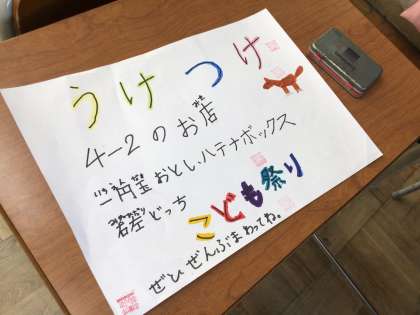 うけつけ
4-2のお店
一円玉おとし ハテナボックス
右左どっち
こども祭り
ぜひぜんぶまわってね。